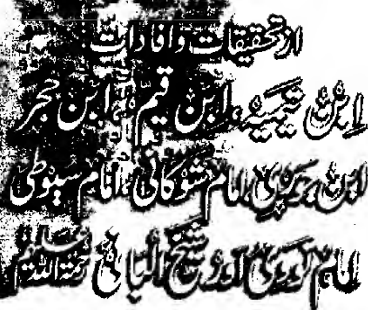 از تحقیقات و افادات:
ابن تیمیہ، ابن قیم، ابن حجر
ابن جوزی، امام شوکانی، امام سیوطی
امام نووی اور شیخ البانی رحمۃ اللہ علیہم